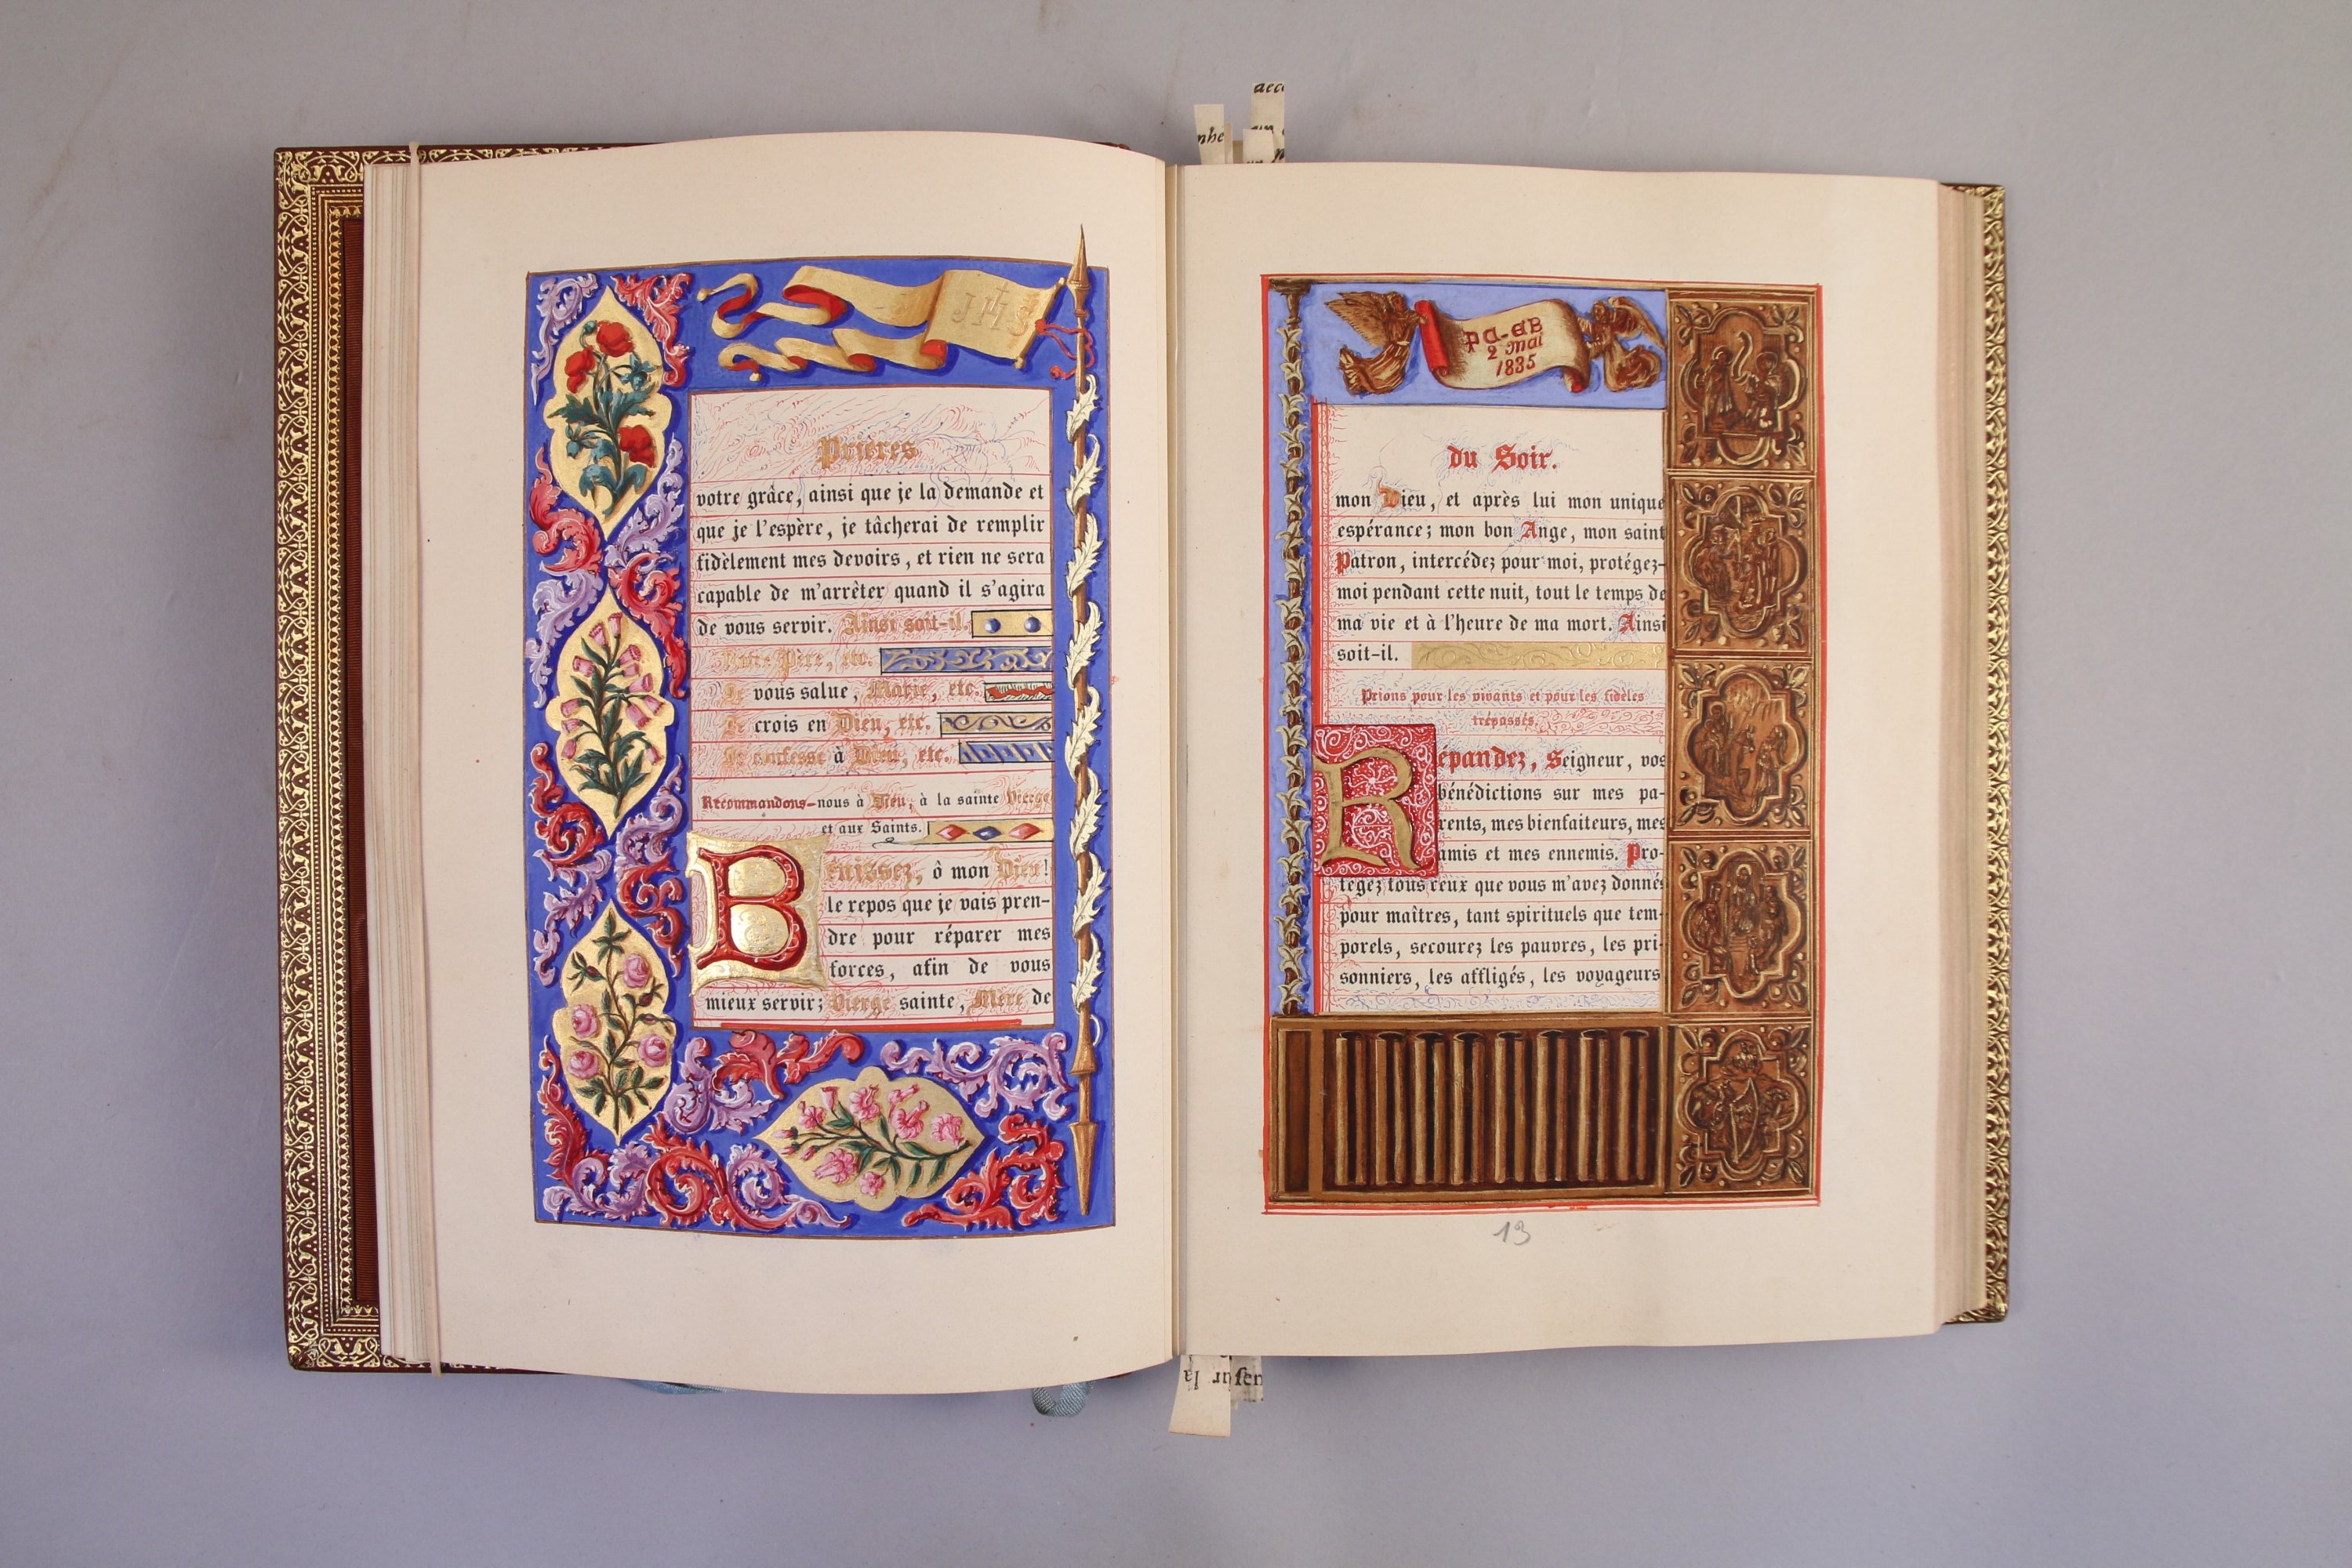 JHS
Prières
votre grâce, ainsi que je la demande et
que je l'espère, je tâcherai de remplir
fidèlement mes devoirs, et rien ne sera
capable de m'arrêter quand il s'agira
de vous servir. Ainsi soit-il.
Notre Père, etc.
Je vous salue, Marie, etc.
Je crois en Dieu, etc.
Je confesse à Dieu, etc.
Recommandons-nous à Dieu, à la sainte Vierge
et aux Saints.
Bénissez, ô mon Dieu!
le repos que je vais pren-
dre pour réparer mes
forces, afin de vous
mieux servir; Vierge sainte, Mère de
PA-EB
2 Mai
1835
du Soir.
mon Dieu, et après lui mon unique
espérance; mon bon Ange, mon saint
Patron, intercédez pour moi, protégez-
moi pendant cette nuit, tout le temps de
ma vie et à l'heure de ma mort. Ainsi
soit-il.
Prions pour les vivants et pour les fidèles
trépassés.
Répandez, Seigneur, vos
bénédictions sur mes pa-
rents, mes bienfaiteurs, mes
amis et mes ennemis. Pro-
tégez tous ceux que vous m'avez donnés
pour maîtres, tant spirituels que tem-
porels, secourez les pauvres, les pri-
sonniers, les affligés, les voyageurs
13